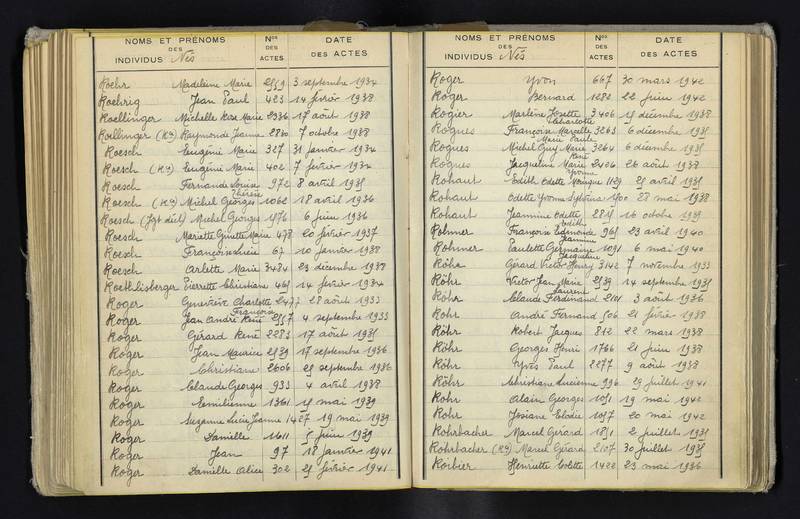 NOMS ET PRÉNOMS DES INDIVIDUS Nés | Nos DES ACTES | DATE DES ACTES
Roehr Madeleine Marie 2559 3 septembre 1934
Roehrig Jean Paul 423 14 février 1938
Roellinger Michelle Rose Marie 2336 17 août 1938
Roellinger Raymonde Jeanne 2880 7 octobre 1938
Roesch Eugénie Marie 327 31 janvier 1934
Roesch Eugénie Marie 402 7 février 1934
Roesch Fernande Louise Thérèse 972 8 avril 1935
Roesch Michel Georges 1062 18 avril 1936
Roesch Michel Georges 1576 6 juin 1936
Roesch Mariette Ginette Marie 478 20 février 1937
Roesch 67 10 janvier 1938
Roesch Arlette Marie 3484 23 décembre 1938
Roethlisberger Pierrette Christiane 465 14 février 1934
Roger Geneviève Charlotte 2477 28 août 1933
Roger Jean André René François 2557 4 septembre 1933
Roger Gérard René 2283 17 août 1935
Roger Jean Maurice 2539 17 septembre 1936
Roger Christiane 2606 25 septembre 1936
Roger Claude Georges 933 4 avril 1938
Roger Emilienne 1361 15 mai 1939
Roger Suzanne Lucie Jeanne 1427 19 mai 1939
Roger Danielle 1611 5 juin 1939
Roger Jean 97 18 janvier 1941
Roger Danielle Alice 302 25 février 1941
NOMS ET PRÉNOMS DES INDIVIDUS Nés | Nos DES ACTES | DATE DES ACTES
Roger Yvon 667 30 mars 1942
Roger Bernard 1282 22 juin 1942
Rogier Marlène Josette Charlotte 3406 15 décembre 1938
Rogues Françoise Marcelle Marie Paule 3263 6 décembre 1935
Rogues Michel Guy Marie René 3264 6 décembre 1935
Rogues Jacqueline Marie Yvonne 2406 26 août 1938
Rohaut Edith Odette Monique 1129 25 avril 1935
Rohaut Odette Yvonne Sylviane 1500 28 mai 1938
Rohaut Jeannine Odette Edith 2815 16 octobre 1939
Rohmer Françoise Edmonde Jeannine 965 23 avril 1940
Rohmer Paulette Germaine Jacqueline 1091 6 mai 1940
Röhr Gérard Victor Henry 3142 7 novembre 1933
Röhr Victor Jean Marie Laurent 2539 14 septembre 1935
Röhr Claude Ferdinand 2111 3 août 1936
Rohr André Fernand 506 21 février 1938
Röhr Robert Jacques 812 22 mars 1938
Röhr Georges Henri 1766 21 juin 1938
Röhr Yves Paul 2277 9 août 1938
Röhr Christiane Lucienne 996 29 juillet 1941
Rohr Alain Georges 1051 19 mai 1942
Rohr Josiane Elodie 1057 20 mai 1942
Rohrbacher Marcel Gérard 1851 2 juillet 1935
Rohrbacher Marcel Gérard 2107 30 juillet 1935
Roibier Henriette Colette 1422 23 mai 1936